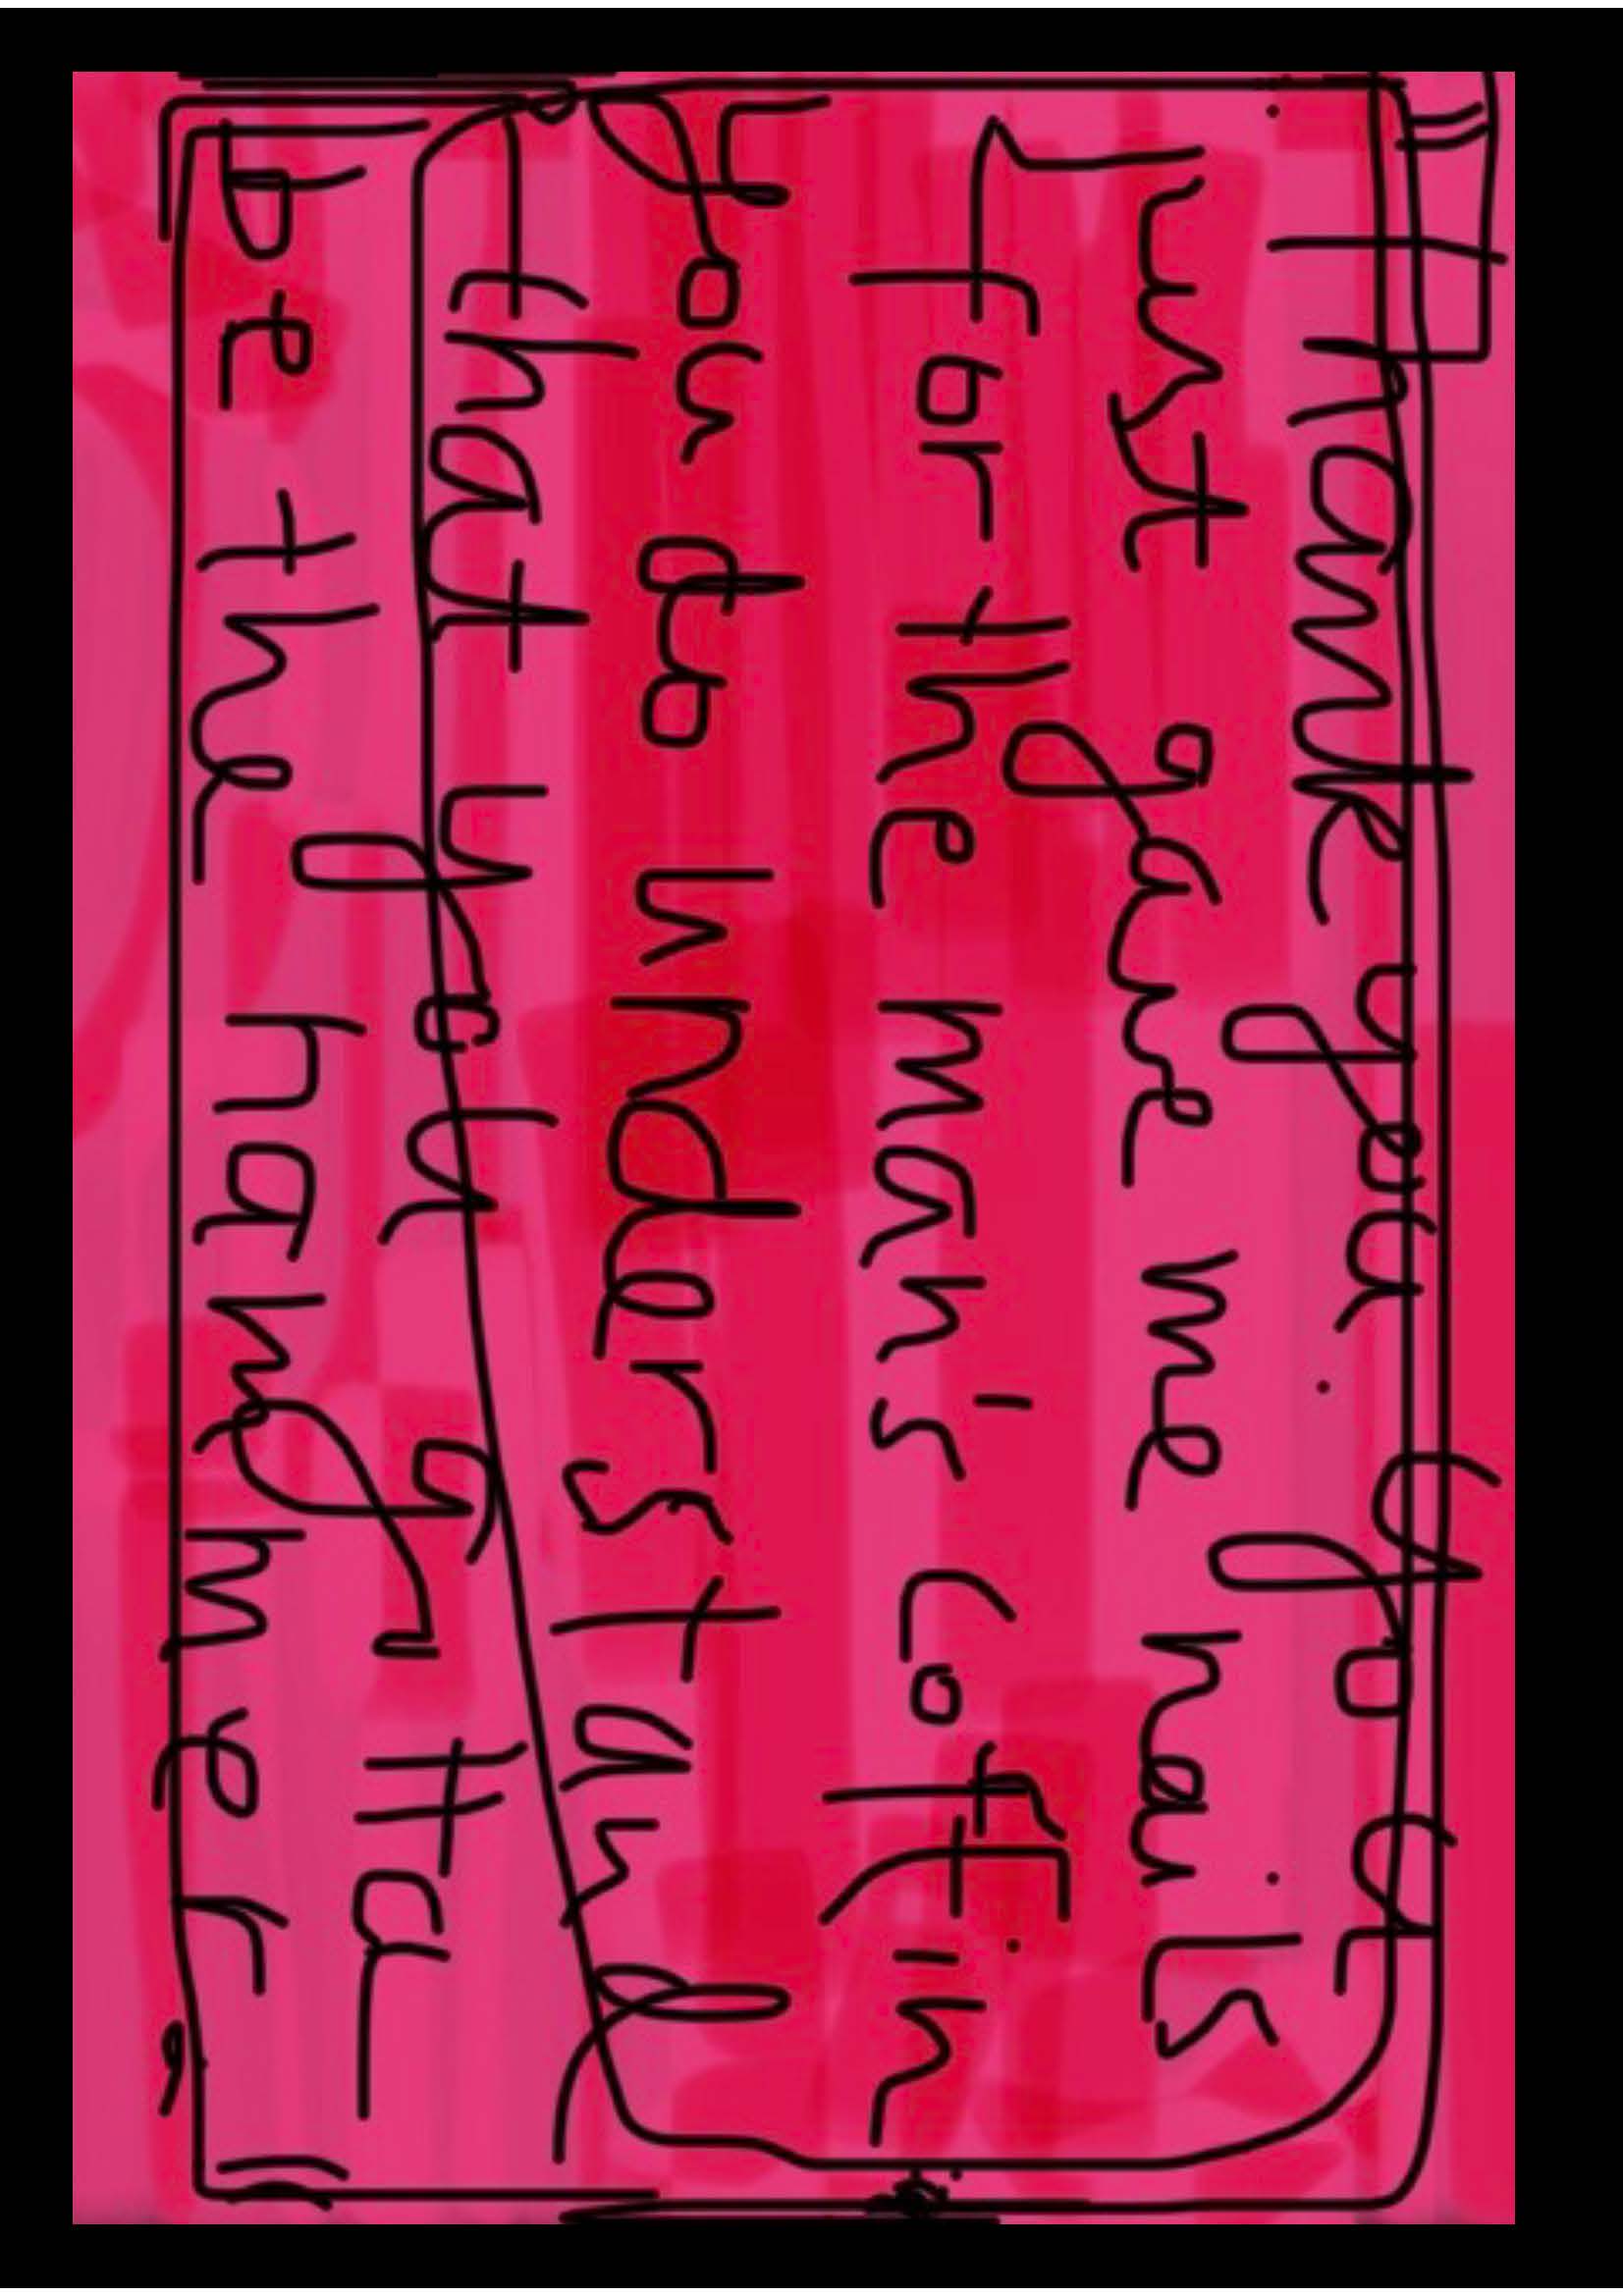 Thank you. You
just gave me nails
for the man's coffin
you do understand
that you gotta
be the hammer,